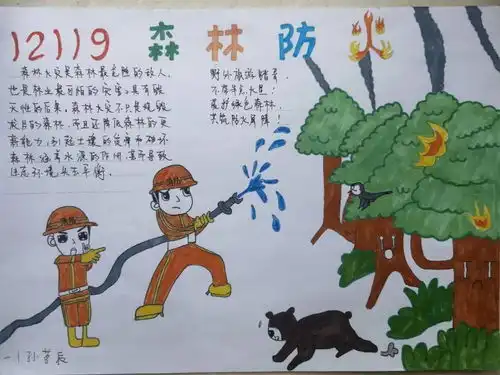 12119 森林防火
森林火灾是森林最危险的敌人,
也是林业最可怕的灾害,具有毁
灭性的后果。森林火灾不只是烧毁
成片的森林,而且还降低森林的更
新能力,引起土壤的贫瘠和破坏
森林涵养水源的作用,甚至导致
生态环境失去平衡。
野外旅游踏青,
不带半点火星!
爱护绿色森林,
共筑防火屏障!
消防
消防